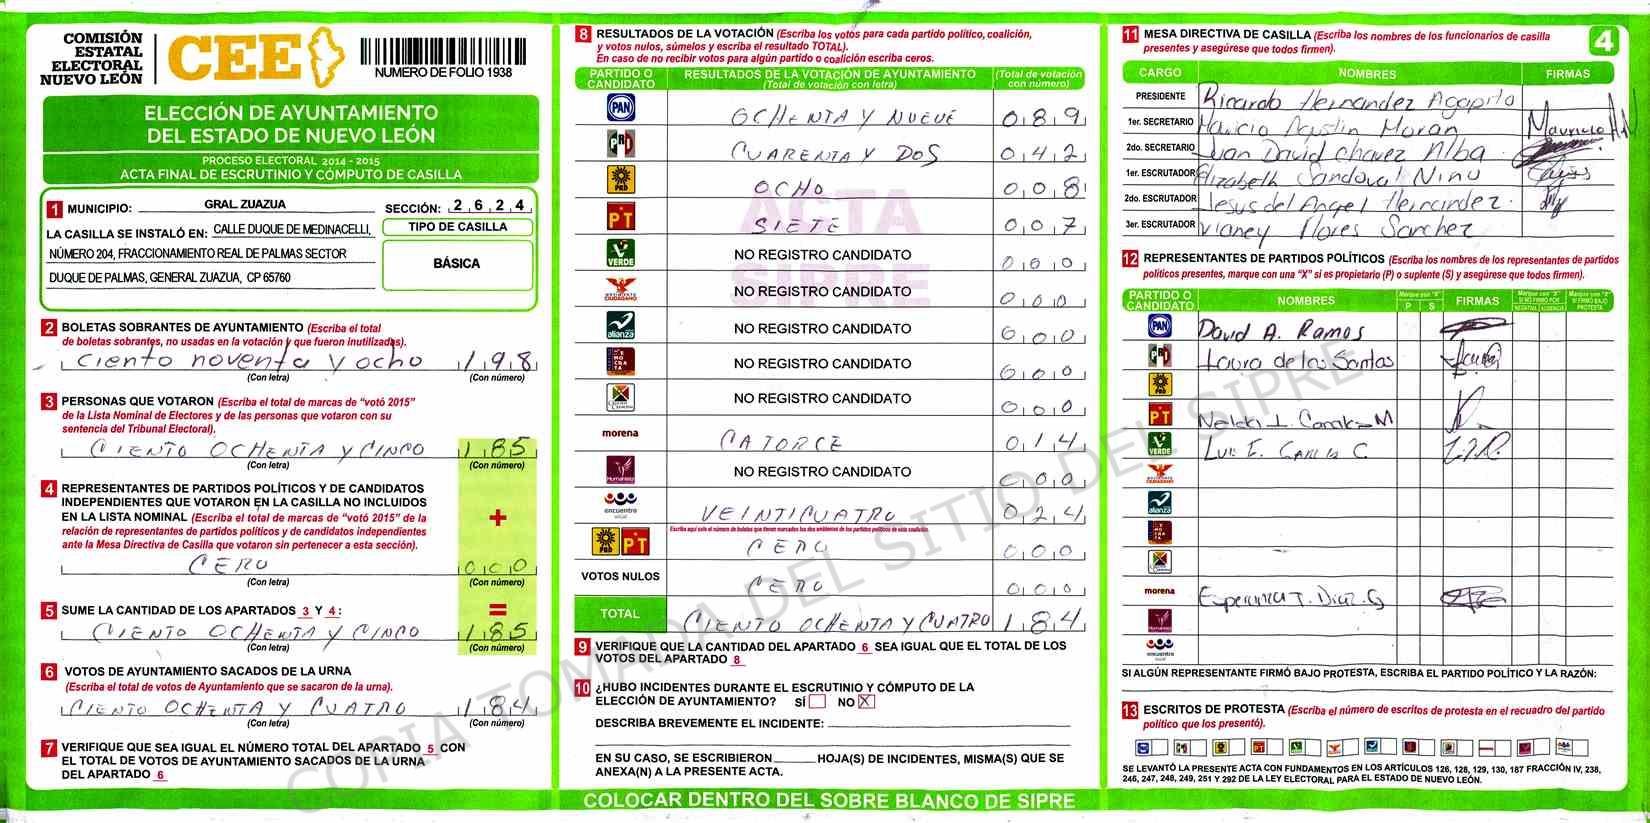 COMISIÓN
ESTATAL
ELECTORAL
NUEVO LEÓN
CEE
NUMERO DE FOLIO 1938
ELECCIÓN DE AYUNTAMIENTO
DEL ESTADO DE NUEVO LEÓN
PROCESO ELECTORAL 2014 - 2015
ACTA FINAL DE ESCRUTINIO Y CÓMPUTO DE CASILLA
1 MUNICIPIO: GRAL ZUAZUA SECCIÓN: 2 6 2 4
LA CASILLA SE INSTALÓ EN: CALLE DUQUE DE MEDINACELLI,
NÚMERO 204, FRACCIONAMIENTO REAL DE PALMAS SECTOR
DUQUE DE PALMAS, GENERAL ZUAZUA, CP 65760
TIPO DE CASILLA
BÁSICA
2 BOLETAS SOBRANTES DE AYUNTAMIENTO (Escriba el total
de boletas sobrantes, no usadas en la votación y que fueron inutilizadas).
ciento noventa y ocho 198
(Con letra) (Con número)
3 PERSONAS QUE VOTARON (Escriba el total de marcas de “votó 2015”
de la Lista Nominal de Electores y de las personas que votaron con su
sentencia del Tribunal Electoral).
CIENTO OCHENTA Y CINCO 185
(Con letra) (Con número)
4 REPRESENTANTES DE PARTIDOS POLÍTICOS Y DE CANDIDATOS
INDEPENDIENTES QUE VOTARON EN LA CASILLA NO INCLUIDOS
EN LA LISTA NOMINAL (Escriba el total de marcas de “votó 2015” de la
relación de representantes de partidos políticos y de candidatos independientes
ante la Mesa Directiva de Casilla que votaron sin pertenecer a esta sección).
+
CERO 000
(Con letra) (Con número)
5 SUME LA CANTIDAD DE LOS APARTADOS 3 Y 4: =
CIENTO OCHENTA Y CINCO 185
(Con letra) (Con número)
6 VOTOS DE AYUNTAMIENTO SACADOS DE LA URNA
(Escriba el total de votos de Ayuntamiento que se sacaron de la urna).
CIENTO OCHENTA Y CUATRO 184
(Con letra) (Con número)
7 VERIFIQUE QUE SEA IGUAL EL NÚMERO TOTAL DEL APARTADO 5 CON
EL TOTAL DE VOTOS DE AYUNTAMIENTO SACADOS DE LA URNA
DEL APARTADO 6
8 RESULTADOS DE LA VOTACIÓN (Escriba los votos para cada partido político, coalición,
y votos nulos, súmelos y escriba el resultado TOTAL).
En caso de no recibir votos para algún partido o coalición escriba ceros.
PARTIDO O CANDIDATO RESULTADOS DE LA VOTACIÓN DE AYUNTAMIENTO (Total de votación con letra) (Total de votación con número)
PAN OCHENTA Y NUEVE 089
PRD CUARENTA Y DOS 042
PRD OCHO 008
PT SIETE 007
VERDE NO REGISTRO CANDIDATO 000
MOVIMIENTO CIUDADANO NO REGISTRO CANDIDATO 000
alianza NO REGISTRO CANDIDATO 000
DEMOCRATA NO REGISTRO CANDIDATO 000
NO REGISTRO CANDIDATO 000
morena CATORCE 014
Humanista NO REGISTRO CANDIDATO 000
encuentro social VEINTICUATRO 024
Escriba aquí solo el número de boletas que tienen marcados los dos emblemas de los partidos políticos de esta coalición.
PRD PT CERO 000
VOTOS NULOS CERO 000
TOTAL CIENTO OCHENTA Y CUATRO 184
9 VERIFIQUE QUE LA CANTIDAD DEL APARTADO 6 SEA IGUAL QUE EL TOTAL DE LOS
VOTOS DEL APARTADO 8
10 ¿HUBO INCIDENTES DURANTE EL ESCRUTINIO Y CÓMPUTO DE LA
ELECCIÓN DE AYUNTAMIENTO? SÍ NO X
DESCRIBA BREVEMENTE EL INCIDENTE:
EN SU CASO, SE ESCRIBIERON HOJA(S) DE INCIDENTES, MISMA(S) QUE SE
ANEXA(N) A LA PRESENTE ACTA.
COLOCAR DENTRO DEL SOBRE BLANCO DE SIPRE
11 MESA DIRECTIVA DE CASILLA (Escriba los nombres de los funcionarios de casilla
presentes y asegúrese que todos firmen).
4
CARGO NOMBRES FIRMAS
PRESIDENTE Ricardo Hernandez Agapito
1er. SECRETARIO Mauricio Agustin Moran Mauricio
2do. SECRETARIO Juan David Chavez Alba
1er. ESCRUTADOR Elizabeth Sandoval Nino
2do. ESCRUTADOR Jesus del Angel Hernandez
3er. ESCRUTADOR Vianey Flores Sanchez
12 REPRESENTANTES DE PARTIDOS POLÍTICOS (Escriba los nombres de los representantes de partidos
políticos presentes, marque con una “X” si es propietario (P) o suplente (S) y asegúrese que todos firmen).
PARTIDO O CANDIDATO NOMBRES Marque con "X" P S FIRMAS Marque con "X" SI NO FIRMÓ POR NEGATIVA AUSENCIA Marque con "X" SI FIRMÓ BAJO PROTESTA
PAN David A. Ramos
PRI Laura de los Santos
PRD
PT Nelda I. M
VERDE Luis E. Garcia C.
CIUDADANO
alianza
morena Esperanza T. Diaz G
encuentro social
SI ALGÚN REPRESENTANTE FIRMÓ BAJO PROTESTA, ESCRIBA EL PARTIDO POLÍTICO Y LA RAZÓN:
13 ESCRITOS DE PROTESTA (Escriba el número de escritos de protesta en el recuadro del partido
político que los presentó).
SE LEVANTÓ LA PRESENTE ACTA CON FUNDAMENTOS EN LOS ARTÍCULOS 126, 128, 129, 130, 187 FRACCIÓN IV, 238,
246, 247, 248, 249, 251 Y 292 DE LA LEY ELECTORAL PARA EL ESTADO DE NUEVO LEÓN.
ACTA
SIPRE
COPIA TOMADA DEL SITIO DEL SIPRE